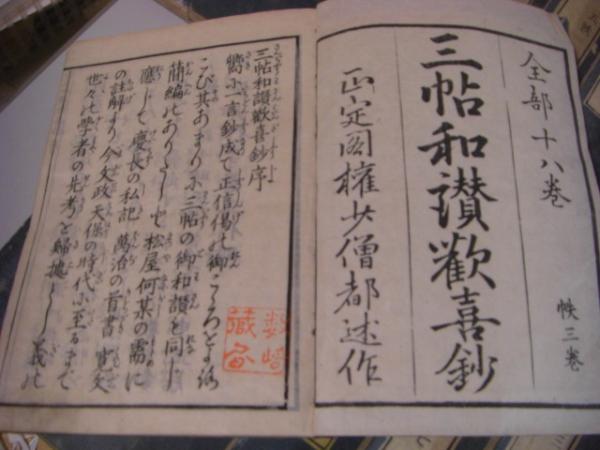 全部十八巻
三帖和讃歓喜鈔
帙三巻
正定閣権少僧都述作
三帖和讃歓喜鈔序
嚮に一言鈔成て正信偈の御こゝろをよろ
こび其あまりに三帖の御和讃を同じ
蘭編のありたしと松屋何某の需に
應じて慶長の私記萬治の首書寛文
の註解より今文政天保の時代に至るまで
世々の學者の先考を歸撼とし義の
數﨑
藏書